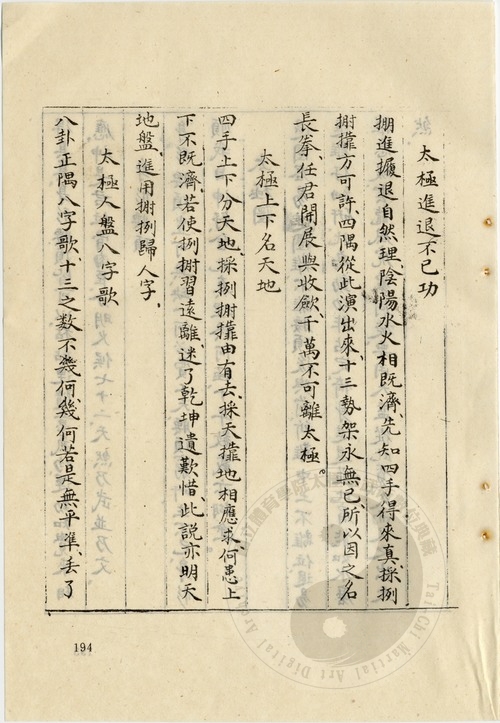 太極進退不已功
掤進擺退自然理、陰陽水火相既濟、先知四手得來真、採挒
掤攡方可許、四隅從此演出來、十三勢架永無已、所以因之名
長拳、任君開展與收歛、千萬不可離太極。
太極上下名天地
四手上下分天地、採挒掤攡由有去、採天攡地相應求、何患上
下不既濟、若使挒掤習遠離、迷了乾坤遺歎惜、此説亦明天
地盤、進用掤挒歸人字、
太極人盤八字歌
八卦正隅八字歌、十三之数不幾何、幾何若是無平準、丢了
194
Tai Chi Martial Art Digital Ar